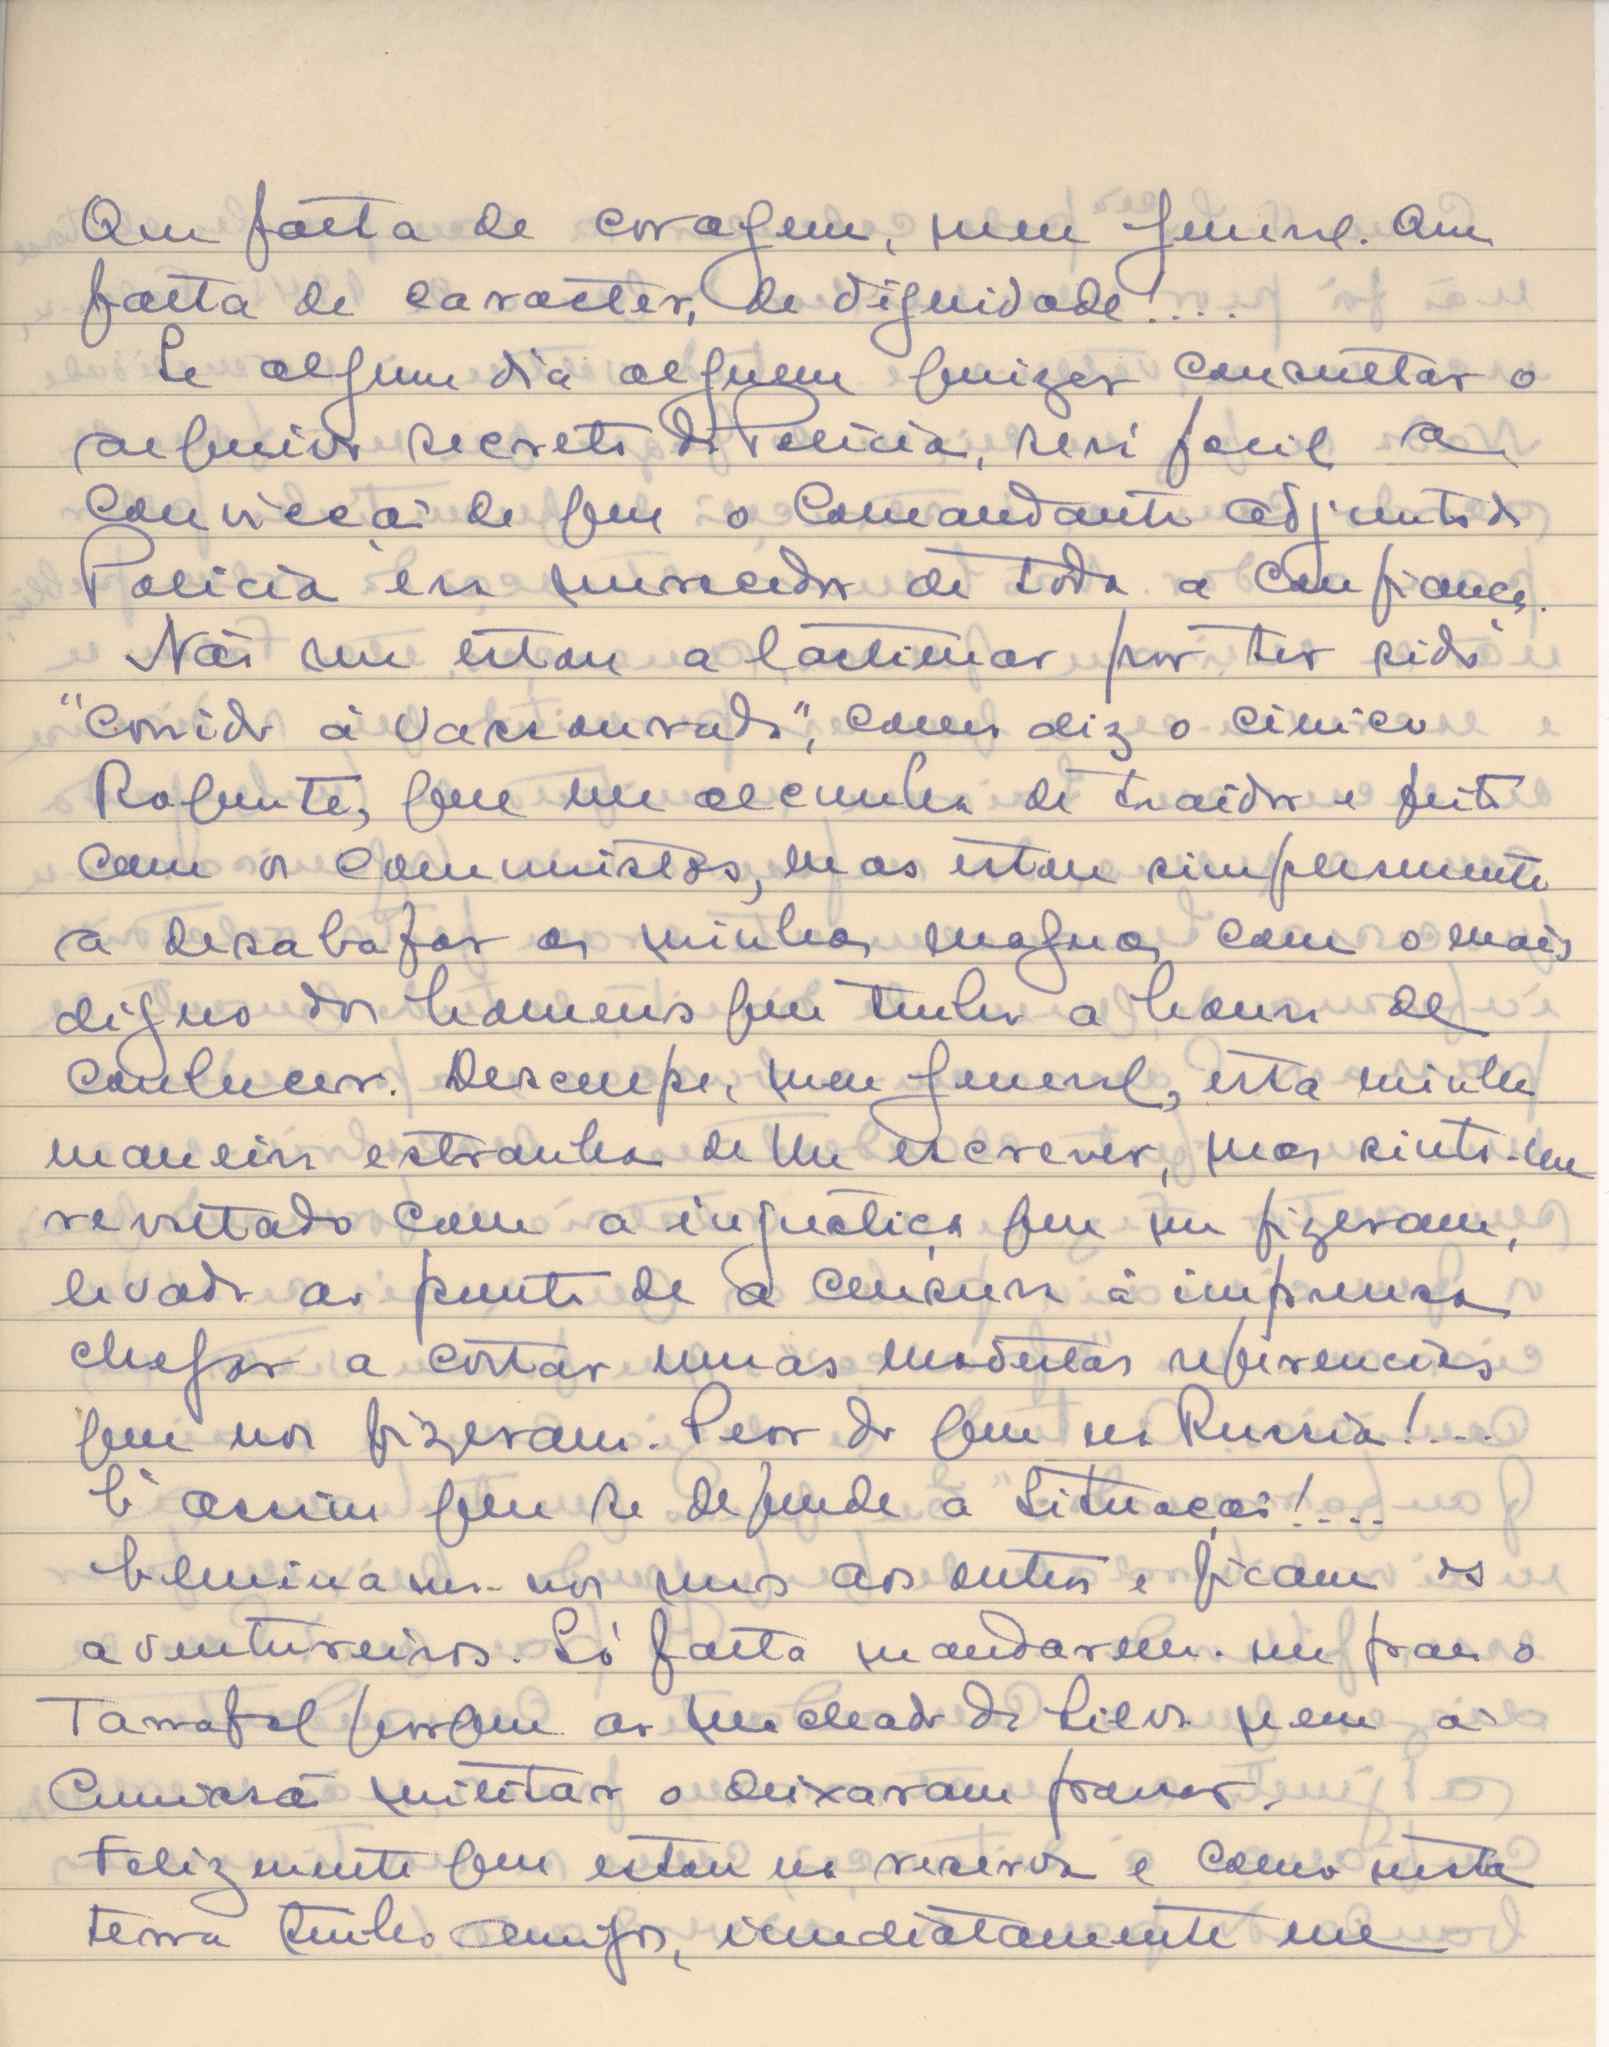 Que falta de coragem, meu general. Que
falta de caracter, de dignidade!....
Se algum dia alguem quizer consultar o
arquivo secreto da Policia, será facil a
convicção de que o Comandante adjunto da
Policia era merecedor de toda a confiança.
Não me estou a lastimar por ter sido
"corrido à vassourada", como diz o cinico
Roquete, que me alcunha de traidor e feito
com os communistas, mas estou simplesmente
a desabafar as minhas maguas com o mais
digno dos homens que tenho a honra de
conhecer. Desculpe, meu general, esta minha
maneira estranha de lhe escrever, mas sinto-me
revoltado com a injustiça que me fizeram,
levada ao ponto de a censura à imprensa
chegar a cortar umas modestas referencias
que nos fizeram. Peor do que na Russia!...
É assim que se defende a Situação!....
Eliminamo-nos uns aos outros e ficam os
aventureiros. Só falta mandarem-me para o
Tarrafal porque ao Machado da Silva nem à
Comissão militar o deixaram passar.
Felizmente que estou na reserva e como nesta
terra tenho amigos, imediatamente me